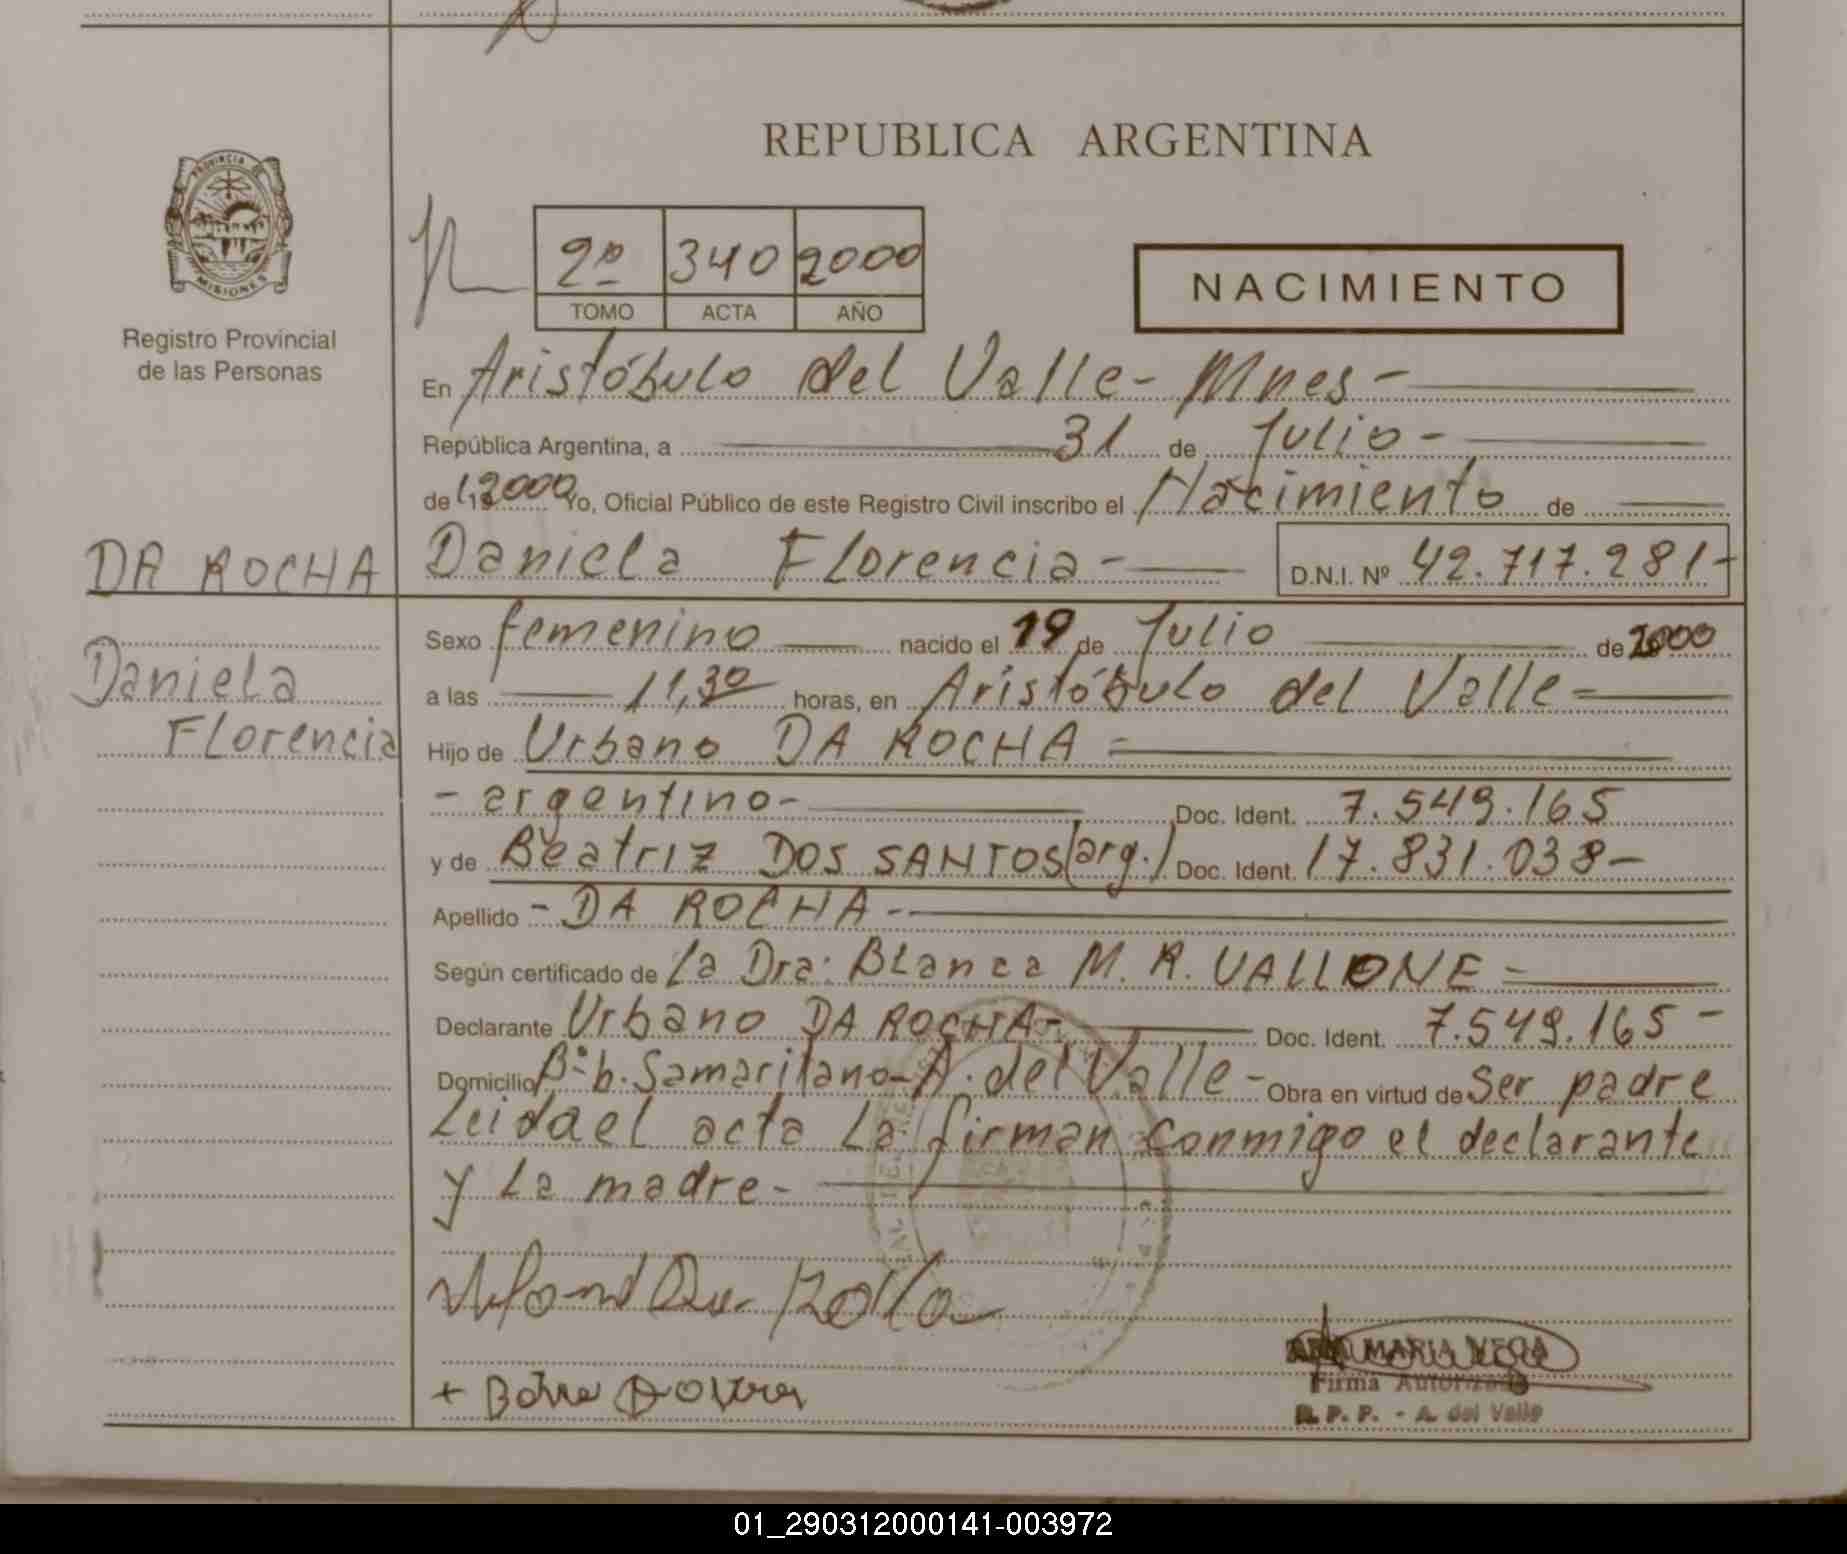 REPUBLICA ARGENTINA
PROVINCIA DE
MISIONES
Registro Provincial
de las Personas
2º 340 2000
TOMO ACTA AÑO
NACIMIENTO
En Aristóbulo del Valle - Mnes -
República Argentina, a 31 de Julio -
de 19 2000 Yo, Oficial Público de este Registro Civil inscribo el Nacimiento de
DA ROCHA
Daniela Florencia - D.N.I. Nº 42.717.281-
Daniela
Florencia
Sexo femenino nacido el 19 de Julio de 2000
a las 11,30 horas, en Aristóbulo del Valle =
Hijo de Urbano DA ROCHA =
- argentino - Doc. Ident. 7.549.165
y de Beatriz DOS SANTOS (arg.) Doc. Ident. 17.831.038-
Apellido - DA ROCHA -
Según certificado de La Dra: Blanca M. R. VALLONE =
Declarante Urbano DA ROCHA - Doc. Ident. 7.549.165 -
Domicilio Bº b. Samaritano - A. del Valle - Obra en virtud de Ser padre
Leida el acta La firman conmigo el declarante
y La madre -
ANA MARIA VEGA
Firma Autorizada
R. P. P. - A. del Valle
01_290312000141-003972